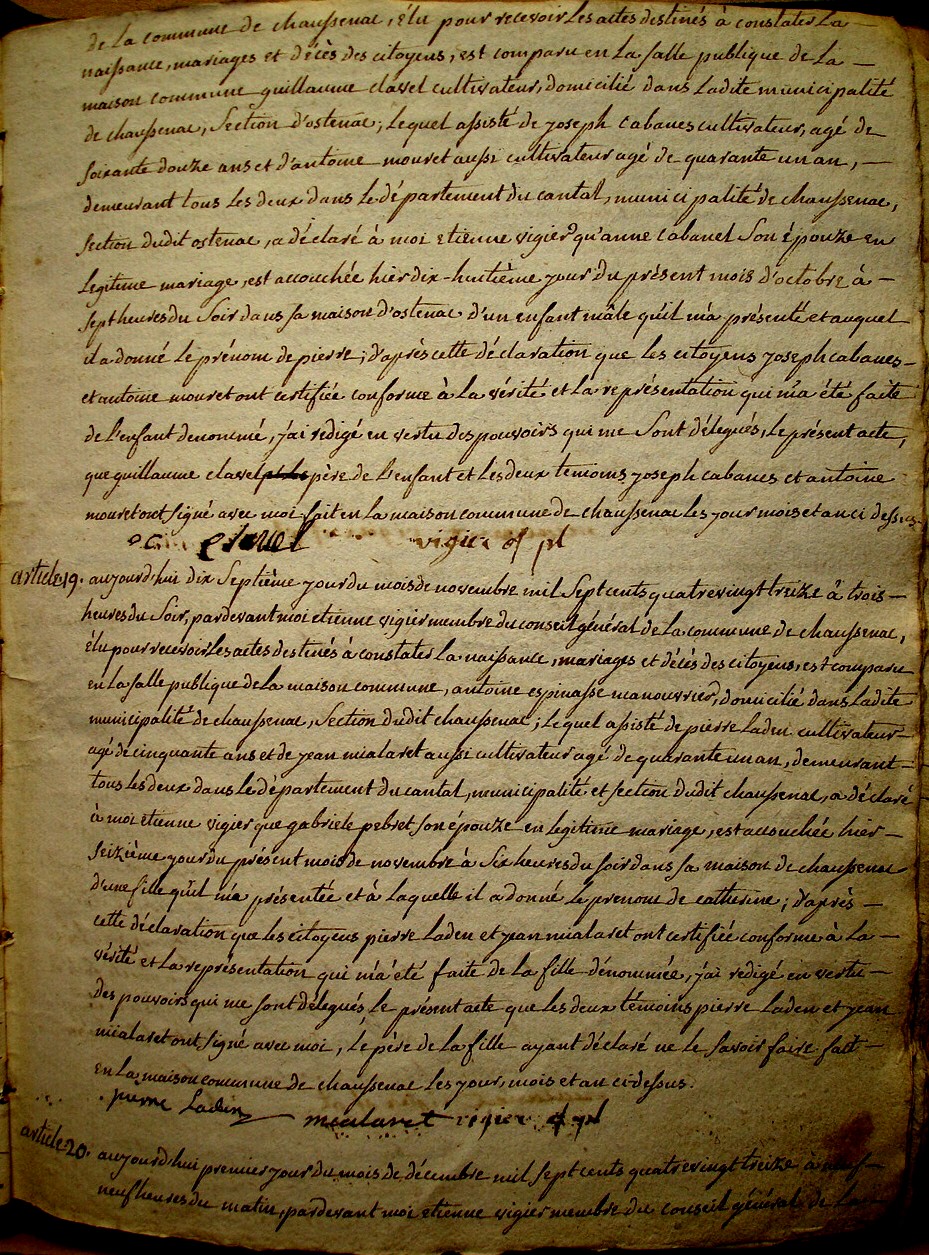 de la commune de chaussenac, élu pour recevoir les actes destinés à constater la
naissance, mariages et décès des citoyens, est comparu en la salle publique de la
maison commune guillaume clavel cultivateur, domicilié dans ladite municipalité
de chaussenac, section d'ostenac, lequel assisté de joseph cabanes cultivateur, agé de
soixante douze ans et d'antoine mouret aussi cultivateur agé de quarante un an,
demeurant tous les deux dans le département du cantal, municipalité de chaussenac,
section dudit ostenac, a déclaré à moi etienne vigier qu'anne cabanel son épouze en
legitime mariage, est accouchée hier dix-huitième jour du présent mois d'octobre à
sept heures du soir dans sa maison d'ostenac d'un enfant mâle qu'il m'a présenté et auquel
il a donné le prénom de pierre; d'après cette déclaration que les citoyens joseph cabanes
et antoine mouret ont certifiée conforme à la vérité et la représentation qui m'a été faite
de l'enfant denommé, j'ai redigé en vertu des pouvoirs qui me sont délegués, le présent acte,
que guillaume clavel père de l'enfant et les deux témoins joseph cabanes et antoine
mouret ont signé avec moi, fait en la maison commune de chaussenac les jour mois et an ci dessus.
clavel vigier of pl
article 19. aujourd'hui dix septième jour du mois de novembre mil sept cents quatrevingt treize à trois
heures du soir, pardevant moi etienne vigier membre du conseil général de la commune de chaussenac,
élu pour recevoir les actes destinés à constater la naissance, mariages et décès des citoyens, est comparu
en la salle publique de la maison commune, antoine espinasse manouvrier, domicilié dans ladite
municipalité de chaussenac, section dudit chaussenac; lequel assisté de pierre laden cultivateur
agé de cinquante ans et de jean mialaret aussi cultivateur agé de quarante un an, demeurant
tous les deux dans le département du cantal, municipalité et section dudit chaussenac, a déclaré
à moi etienne vigier que gabriele pebret son épouze en legitime mariage, est accouchée hier
seizième jour du présent mois de novembre à six heures du soir dans sa maison de chaussenac
d'une fille qu'il m'a présentée et à laquelle il a donné le prenom de catherine; d'après
cette déclaration que les citoyens pierre laden et jean mialaret ont certifiée conforme à la
vérité et la représentation qui m'a été faite de la fille dénommée, j'ai redigé en vertu
des pouvoirs qui me sont délegués, le présent acte que les deux témoins pierre laden et jean
mialaret ont signé avec moi, le père de la fille ayant déclaré ne le savoir faire fait
en la maison commune de chaussenac les jour, mois et an ci-dessus.
pierre Laden mialaret vigier of pl
article 20. aujourd'hui premier jour du mois de décembre mil sept cents quatrevingt treize à neuf
neuf heures du matin, pardevant moi etienne vigier membre du conseil général de la